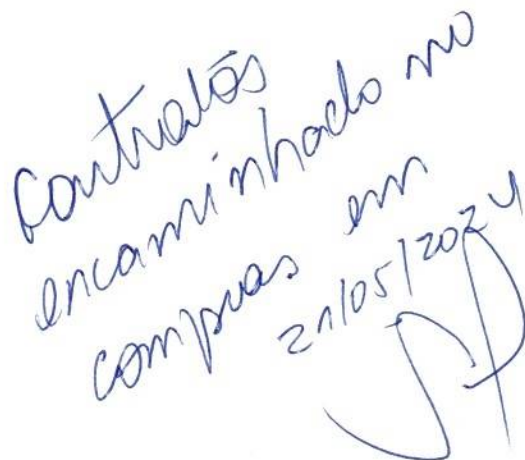 Contratos
encaminhado no
compras em
21/05/2024